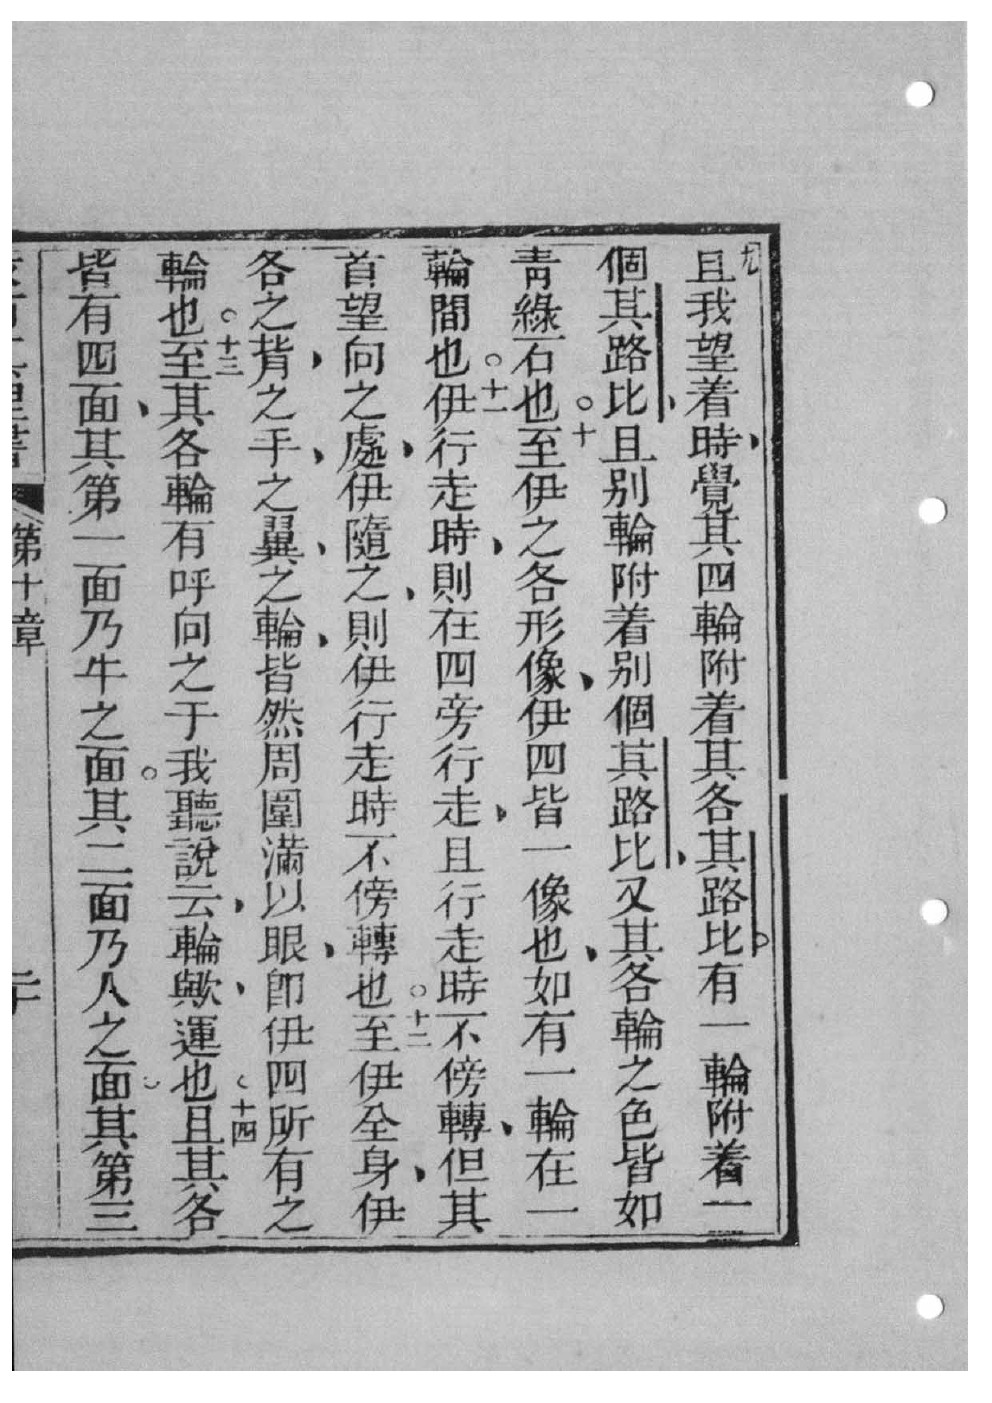 九且我望着時覺其四輪附着其各其路比有一輪附着一
個其路比且别輪附着别個其路比又其各輪之色皆如
青綠石也十至伊之各形像伊四皆一像也如有一輪在一
輪間也十一伊行走時則在四旁行走且行走時不傍轉但其
首望向之處伊隨之則伊行走時不傍轉也十二至伊全身伊
各之背之手之翼之輪皆然周圍滿以眼即伊四所有之
輪也十三至其各輪有呼向之于我聽說云輪歟運也十四且其各
皆有四面其第一面乃牛之面其二面乃人之面其第三
第十章 二十